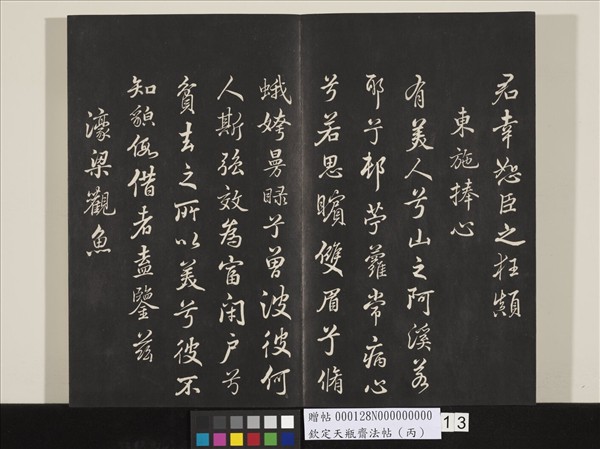 君幸恕臣之狂顛
東施捧心
有美人兮山之阿溪若
耶兮邨苧蘿常病心
兮若思矉雙眉兮脩
蛾姱曼睩兮曾波彼何
人斯強效為富閉户兮
貧去之所以美兮彼不
知貌假借者盍鑒茲
濠梁觀魚
贈帖 000128N000000000
欽定天瓶齋法帖(丙)
13